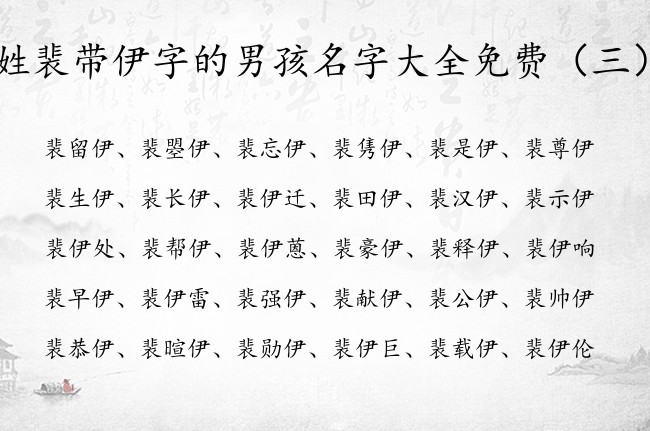 姓裴带伊字的男孩名字大全免费（三）
裴留伊、裴曌伊、裴忘伊、裴隽伊、裴是伊、裴尊伊
裴生伊、裴长伊、裴伊迁、裴田伊、裴汉伊、裴示伊
裴伊处、裴帮伊、裴伊蒽、裴豪伊、裴释伊、裴伊响
裴早伊、裴伊雷、裴强伊、裴献伊、裴公伊、裴帅伊
裴恭伊、裴暄伊、裴勋伊、裴伊巨、裴载伊、裴伊伦